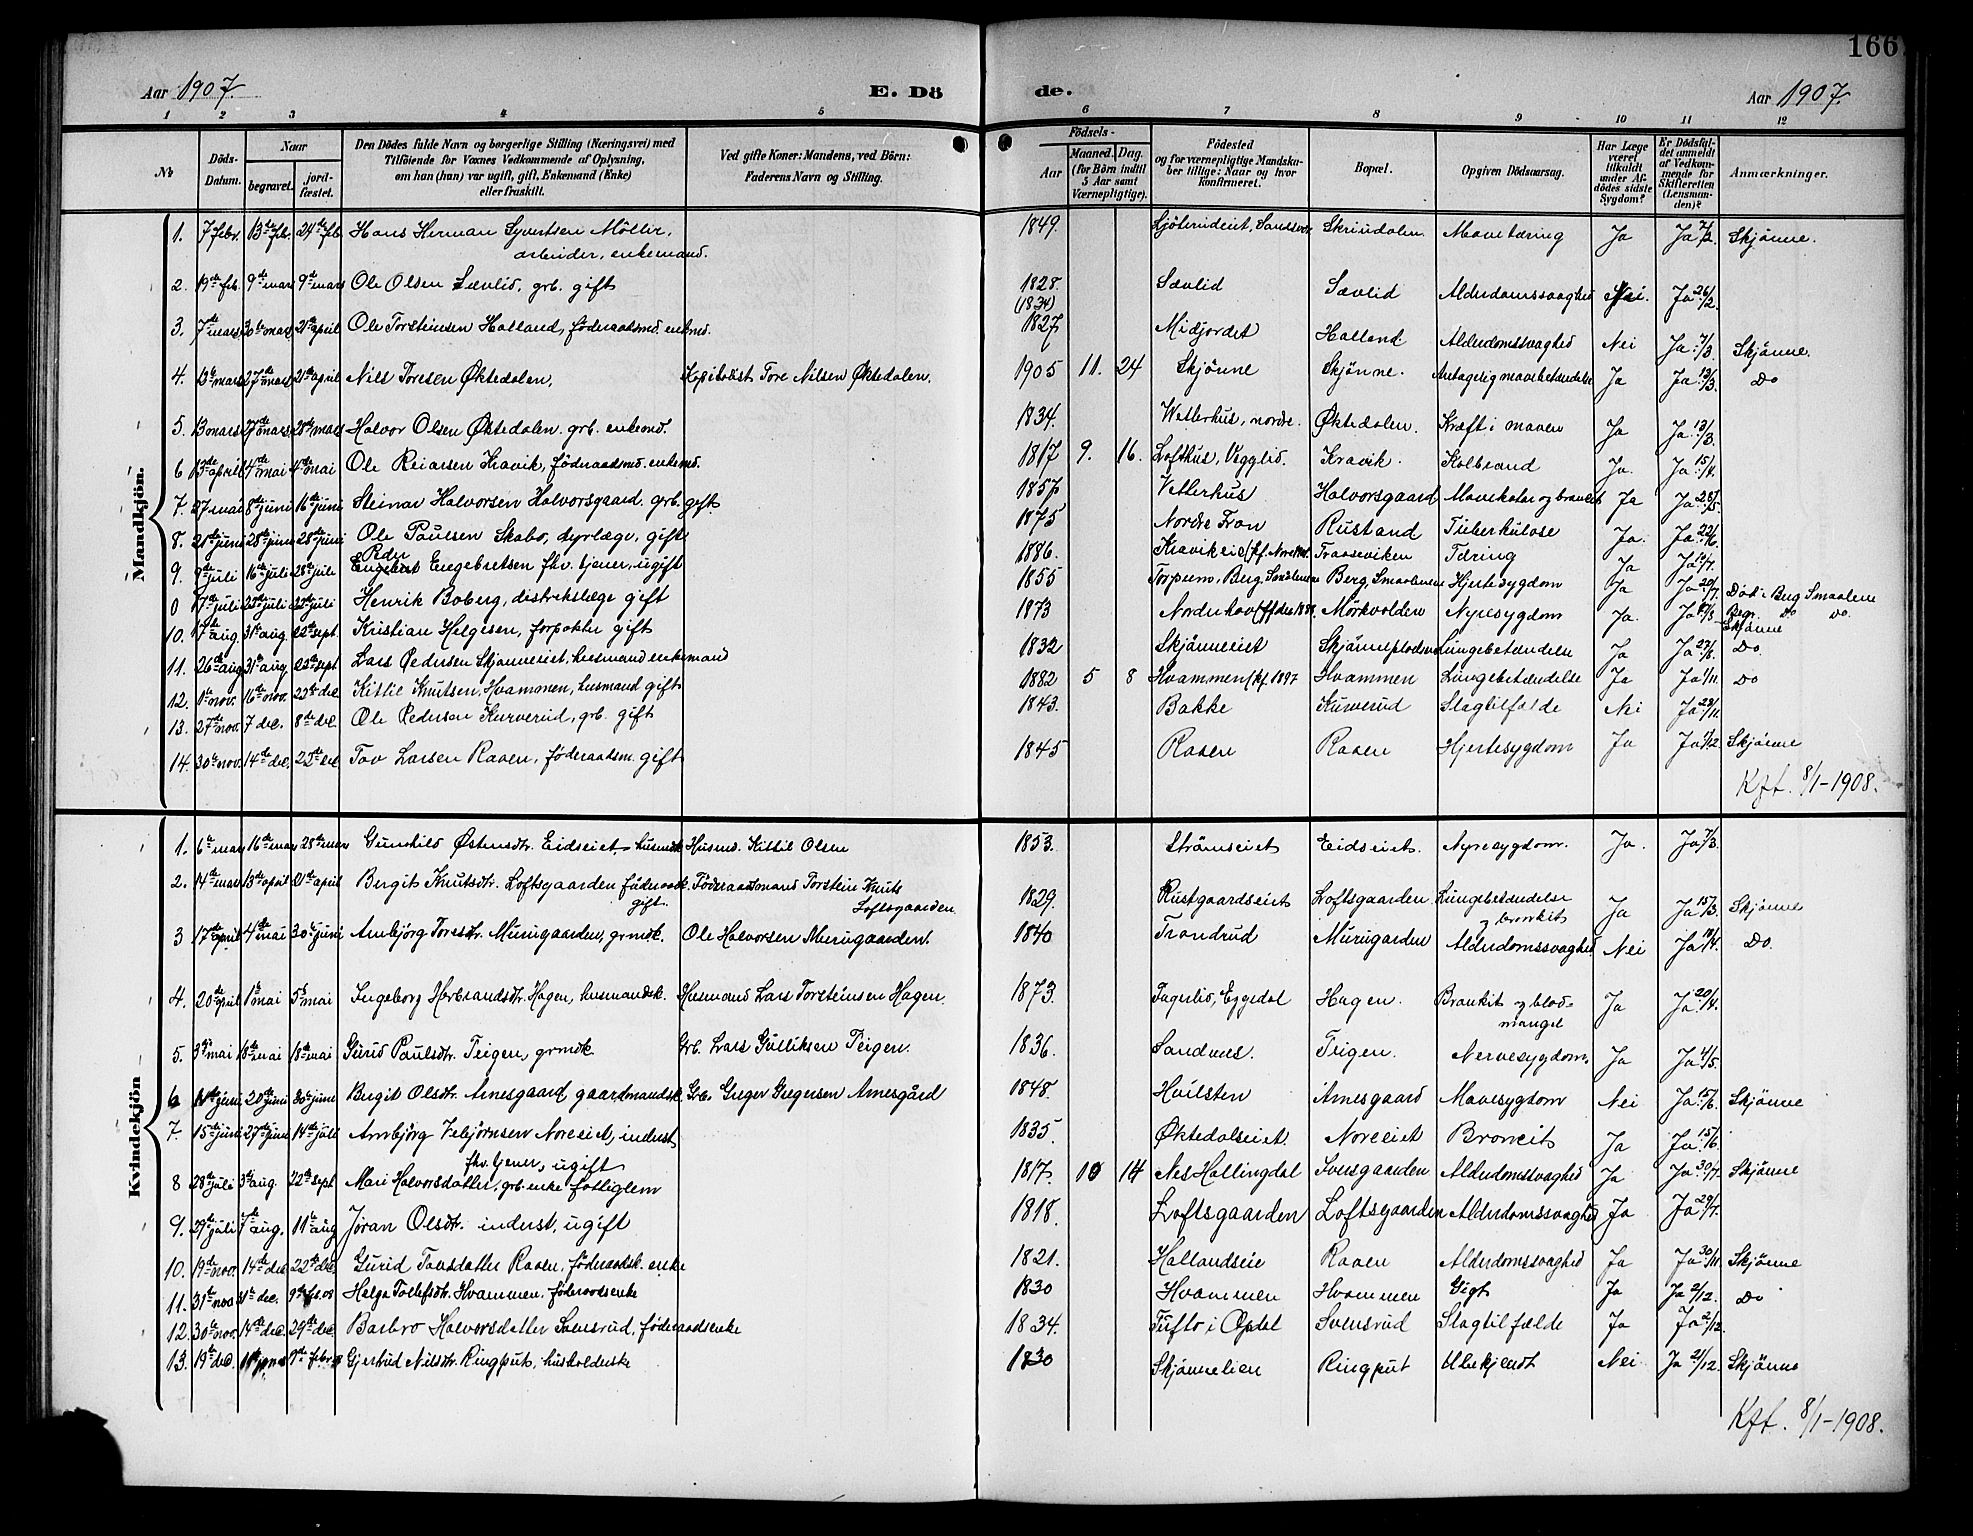 166
Aar 1907. E. Dö de. Aar 1907.
1 2 3 4 5 6 7 8 9 10 11 12
No Döds-Datum. Naar begravet. jordfæstet. Den Dödes fulde Navn og borgerlige Stilling (Næringsvei) med Tilföiende for Voxnes Vedkommende af Oplysning, om han (hun) var ugift, gift, Enkemand (Enke) eller fraskilt. Ved gifte Koner: Mandens, ved Börn: Faderens Navn og Stilling. Födsels- Aar Maaned. Dag. (for Börn indtil 5 Aar samt Værnepligtige). Födested og for værnepligtige Mandskaber tillige: Naar og hvor Konfirmeret. Bopæl. Opgiven Dödsaarsag. Har Læge været tilkaldt under Afdödes sidste Sygdom? Er Dödsfaldet anmeldt af Vedkommende for Skifteretten (Lensmanden)? Anmærkninger.
Mandkjön.
1. 7 febr. 13de feb. 24de feb. Hans Herman Syvertsen Möller, arbeider, enkemand. 1849. Skrindalen Mavetæring Ja Ja 7/2. Skjönne.
2. 19de feb. 9de mars 9de mars Ole Olsen Sævlid, grb. gift 1828. (1834) Sævlid Sævlid Alderdomssvaghed Nei. Ja 26/2.
3. 7de mars 30te mars 21de april Ole Torsteinsen Halland, föderaadsmd. enkmd. 1827 Midjordet Halland Alderdomssvaghed Nei Ja 7/3. Skjönne.
4. 13de mars 27de mars 21de april Nils Toresen Øktedalen, Tore Nilsen Øktedalen. 1905 11. 24 Skjönne Skjönne. Antagelig mavebetændelse Ja Ja 13/3. Do
5. 13 mars 27de mars 28de mars Halvor Olsen Øktedalen. grb. enkemd. 1834. Vetterhus, nordre. Øktedalen. Kræft i maven Ja Ja 13/3.
6 13de april 4de mai 4de mai Ole Reiarsen Kravik, föderaadsmd. enkemd. 1817 9. 16. Lofthus, Vegglid. Kravik. Kolbrand Ja. Ja 15/4.
7. 27 mai 8de juni 16de juni Steinar Halvorsen Halvorsgaard. grb. gift. 1857 Vetterhus Halvorsgaard Mavekatar og bronkit Ja Ja 28/5.
8. 21de juni 28de juni 28de juni Ole Paulsen Skabo, dyrlæge, gift 1875 Nordre Fron Rustand Tuberkulose Ja. Ja 22/6.
9. 9de juli 16de juli 28de juli Peder Engebret Engebretsen fhv. tjener, ugift 1886. Traaseviken Tæring Ja Ja 10/7.
0 17de juli 22de juli 22de juli Henrik Boberg, distrikslæge gift 1855 Torpum, Berg, Smaalenene Berg, Smaalenene Hjertesygdom Ja Ja 20/7. Död i Berg Smaalene Begr. do do.
10. 17de aug. 31te aug. 22de sept. Kristian Helgesen, forpakter gift 1873 Norderhov Mörkvolden Nyresygdom Ja. Ja Skjönne
11. 26de aug 31te aug. 22de sept Lars Pedersen Skjönneeiet, husmand enkemand 1832 Skjönneeiet Skjönneplodsen Lungebetændelse Ja Ja 27/8. Do.
12. 1te nov. 16de nov. 22de dec Kittil Knutsen, Hvammen, husmand gift 1882 5 8 Hvammen (kf. 1897 Hvammen Lungebetændelse Ja Ja 1/11. Do
13. 27de nov. 7 dec. 8de dec. Ole Pedersen Kurverud, grb. gift 1843. Bakke Kurverud Slagtilfælde Nei Ja 29/11.
14. 30te nov. 14de dec. 22de dec Tov Larsen Raaen, föderaadsm. gift 1845 Raaen Raaen Hjertesygdom Ja Ja 1/12 Skjönne
Kft. 8/1-1908.
Kvindekjön
1. 6te mars 16de mars 28de mars Gunhild Østensdtr. Eidseiet, husmdk Husmd. Kittil Olsen 1853. Strömseiet Eidseiet. Nyresygdom. Ja. Ja 7/3.
2. 14de mars 13de april 21de april Bergit Knutsdtr. Loftsgaarden föderaadk. gift. Föderaadsmand Torstein Knuts Loftsgaarden. 1829. Rustgaardseiet Loftsgaarden Lungebetændelse og bronkit Ja Ja 15/3. Skjönne
3 17de april 4de mai 30te juni Ambjörg Toresdtr. Murugaarden, grmdk. Ole Halvorsen Murugaarden. 1840 Trondrud Murugarden Alderdomssvaghed Nei Ja 18/4. Do.
4. 20de april 1te mai 5te mai Ingeborg Herbrandsdtr. Hagen, husmandsk. Husmand Lars Torsteinsen Hagen. 1873. Fagerlid, Eggedal Hagen. Bronkit og blodmangel Ja Ja 20/4.
5. 3die mai 18de mai 18de mai Gurid Paulsdtr. Teigen, grmdk. Grb. Lars Gulliksen Teigen. 1836. Sandnes. Teigen. Nervesygdom. Ja Ja 4/5.
6 11te juni 20de juni 30te juni Bergit Olsdtr. Arnesgaard gaardmandsk. Grb. Greger Gregersen Arnesgård 1848. Hvilsten Arnesgaard Mavesygdom Nei Ja 15/6. Skjönne
7. 15de juni 27de juni 14de juli Ambjörg Vebjörnsen Noreeiet, inderst fhv. tjener, ugift 1835. Øktedalseiet. Noreeiet Bronkit Ja Ja 15/6.
8 28de juli 3die aug. 22de sept Mari Halvorsdatter, grb. enke fattiglem 1817. 10 14 Nes Hallingdal Svensgaarden Alderdomssvaghed Ja Ja 30/7. Skjönne
9. 29de juli 7de aug. 11te aug Jöran Olsdtr. inderst, ugift 1818. Loftsgaarden Loftsgaarden Alderdomssvaghed Ja Ja 29/7.
10. 19de nov. 14de dec 22de dec. Gurid Tovsdatter Raaen, föderaadsk. enke 1821. Hallandseie Raaen Alderdomssvaghed Ja Ja 30/11 Skjönne
11. 31te nov 31te dec. 9de feb. 08 Helga Tollefsdtr. Hvammen, föderaadsenke 1830 Hvammen Hvammen Gigt Ja Ja 2/12. Do
12. 30te nov. 14de dec. 29de dec. Barbro Halvorsdatter Svensrud, föderaadsenke 1834. Tufto i Opdal Svensrud Slagtilfælde Ja Ja 2/12.
13. 19de dec. 9de febr. Gjertrud Nilsdtr. Ringput, husholderske 1830 Skjönnelien Ringput Ubekjendt Nei Ja 21/12. Skjönne
Kft. 8/1-1908.